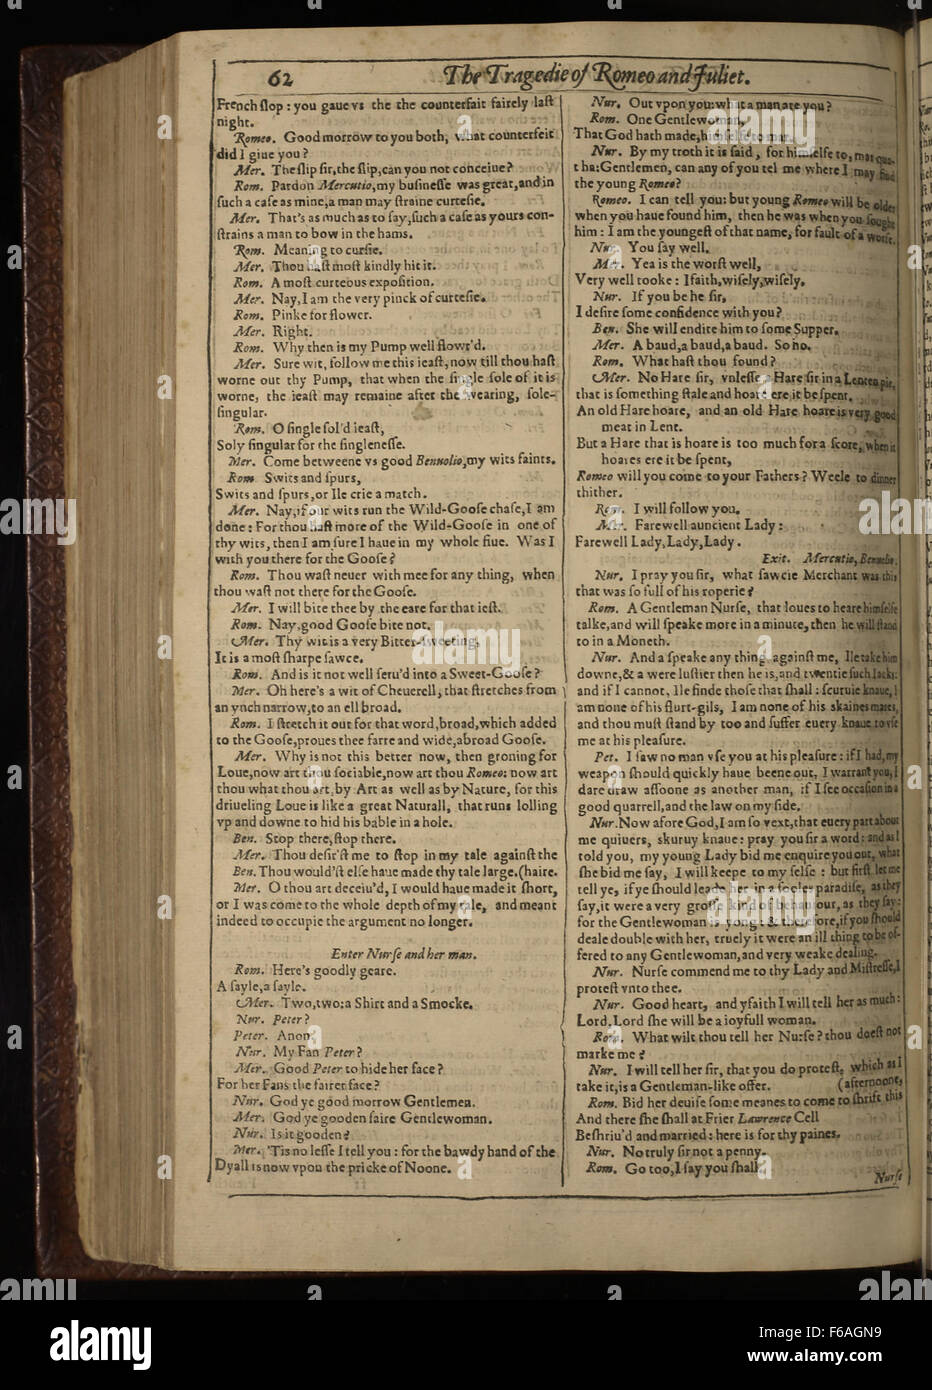 62
The Tragedie of Romeo and Juliet.
French slop: you gaue vs the the counterfait fairely last
night.
Romeo. Good morrow to you both, what counterfeit
did I giue you?
Mer. The slip sir, the slip, can you not conceiue?
Rom. Pardon Mercutio, my businesse was great, and in
such a case as mine, a man may straine curtesie.
Mer. That's as much as to say, such a case as yours con-
strains a man to bow in the hams.
Rom. Meaning to cursie.
Mer. Thou hast most kindly hit it.
Rom. A most curteous exposition.
Mer. Nay, I am the very pinck of curtesie.
Rom. Pinke for flower.
Mer. Right.
Rom. Why then is my Pump well flowr'd.
Mer. Sure wit, follow me this ieast, now till thou hast
worne out thy Pump, that when the single sole of it is
worne, the ieast may remaine after the wearing, sole-
singular.
Rom. O single sol'd ieast,
Soly singular for the singlenesse.
Mer. Come betweene vs good Benuolio, my wits faints.
Rom Swits and spurs,
Swits and spurs, or Ile crie a match.
Mer. Nay, if our wits run the Wild-Goose chase, I am
done: For thou hast more of the Wild-Goose in one of
thy wits, then I am sure I haue in my whole fiue. Was I
with you there for the Goose?
Rom. Thou wast neuer with mee for any thing, when
thou wast not there for the Goose.
Mer. I will bite thee by the eare for that iest.
Rom. Nay, good Goose bite not.
Mer. Thy wit is a very Bitter-sweeting,
It is a most sharpe sawce.
Rom. And is it not well seru'd into a Sweet-Goose?
Mer. Oh here's a wit of Cheuerell, that stretches from
an ynch narrow, to an ell broad.
Rom. I stretch it out for that word, broad, which added
to the Goose, proues thee farre and wide, abroad Goose.
Mer. Why is not this better now, then groning for
Loue, now art thou sociable, now art thou Romeo: now art
thou what thou art, by Art as well as by Nature, for this
driueling Loue is like a great Naturall, that runs lolling
vp and downe to hid his bable in a hole.
Ben. Stop there, stop there.
Mer. Thou desir'st me to stop in my tale against the
Ben. Thou would'st else haue made thy tale large. (haire.
Mer. O thou art deceiu'd, I would haue made it short,
or I was come to the whole depth of my tale, and meant
indeed to occupie the argument no longer.
Enter Nurse and her man.
Rom. Here's goodly geare.
A sayle, a sayle.
Mer. Two, two: a Shirt and a Smocke.
Nur. Peter?
Peter. Anon
Nur. My Fan Peter?
Mer. Good Peter to hide her face?
For her Fans the fairer face?
Nur. God ye good morrow Gentlemen.
Mer. God ye gooden faire Gentlewoman.
Nur. Is it gooden?
Mer. 'Tis no lesse I tell you: for the bawdy hand of the
Dyall is now vpon the pricke of Noone.
Nur. Out vpon you: what a man are you?
Rom. One Gentlewoman,
That God hath made, himselfe to mar.
Nur. By my troth it is said, for himselfe to, mar qua-
tha: Gentlemen, can any of you tel me where I may find
the young Romeo?
Romeo. I can tell you: but young Romeo will be older
when you haue found him, then he was when you sought
him: I am the youngest of that name, for fault of a worse.
Nur. You say well.
Mer. Yea is the worst well,
Very well tooke: Ifaith, wisely, wisely.
Nur. If you be he sir,
I desire some confidence with you?
Ben. She will endite him to some Supper.
Mer. A baud, a baud, a baud. So ho.
Rom. What hast thou found?
Mer. No Hare sir, vnlesse a Hare sir in a Lenten pie,
that is something stale and hoare ere it be spent.
An old Hare hoare, and an old Hare hoare is very good
meat in Lent.
But a Hare that is hoare is too much for a score, when it
hoares ere it be spent,
Romeo will you come to your Fathers? Weele to dinner
thither.
Rom. I will follow you.
Mer. Farewell auncient Lady:
Farewell Lady, Lady, Lady.
Exit. Mercutio, Benuolio.
Nur. I pray you sir, what sawcie Merchant was this
that was so full of his roperie?
Rom. A Gentleman Nurse, that loues to heare himselfe
talke, and will speake more in a minute, then he will stand
to in a Moneth.
Nur. And a speake any thing against me, Ile take him
downe, & a were lustier then he is, and twentie such Iacks:
and if I cannot, Ile finde those that shall: scuruie knaue, I
am none of his flurt-gils, I am none of his skaines mates,
and thou must stand by too and suffer euery knaue to vse
me at his pleasure.
Pet. I saw no man vse you at his pleasure: if I had, my
weapon should quickly haue beene out, I warrant you, I
dare draw assoone as another man, if I see occasion in a
good quarrell, and the law on my side.
Nur. Now afore God, I am so vext, that euery part about
me quiuers, skuruy knaue: pray you sir a word: and as I
told you, my young Lady bid me enquire you out, what
she bid me say, I will keepe to my selfe: but first let me
tell ye, if ye should leade her in a fooles paradise, as they
say, it were a very grosse kind of behauiour, as they say:
for the Gentlewoman is yong: & therefore, if you should
deale double with her, truely it were an ill thing to be of-
fered to any Gentlewoman, and very weake dealing.
Nur. Nurse commend me to thy Lady and Mistresse, I
protest vnto thee.
Nur. Good heart, and yfaith I will tell her as much:
Lord, Lord she will be a ioyfull woman.
Rom. What wilt thou tell her Nurse? thou doest not
marke me?
Nur. I will tell her sir, that you do protest, which as I
take it, is a Gentleman-like offer. (afternoone,
Rom. Bid her deuise some meanes to come to shrift this
And there she shall at Frier Lawrence Cell
Be shriu'd and married: here is for thy paines.
Nur. No truly sir not a penny.
Rom. Go too, I say you shall.
Nurse
alamy
Image ID: F6AGN9
www.alamy.com